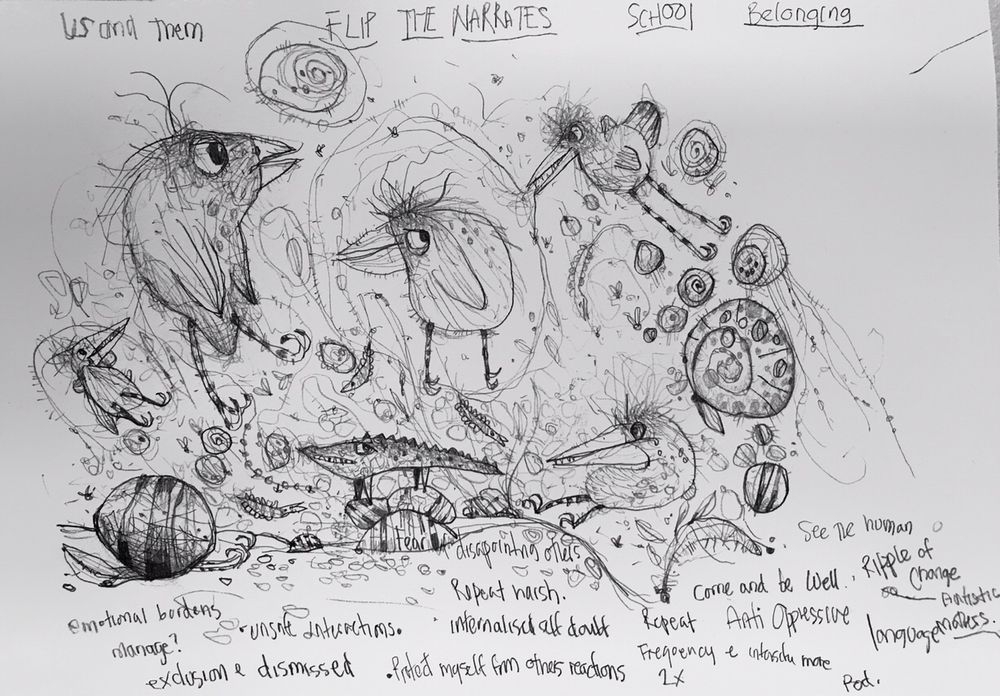 Us and Them
FLIP THE NARRATES
SCHOOl
Belonging
fear
disappointing others
See The human
Ripple of
Change
Come and be Well.
language matters.
Repeat harsh.
emotional borders
manage?
• unsafe interactions.
internalised self doubt
Repeat Anti Oppressive
exclusion e dismissed
• Protect myself from others reactions
Frequency e more
2x
Pod.